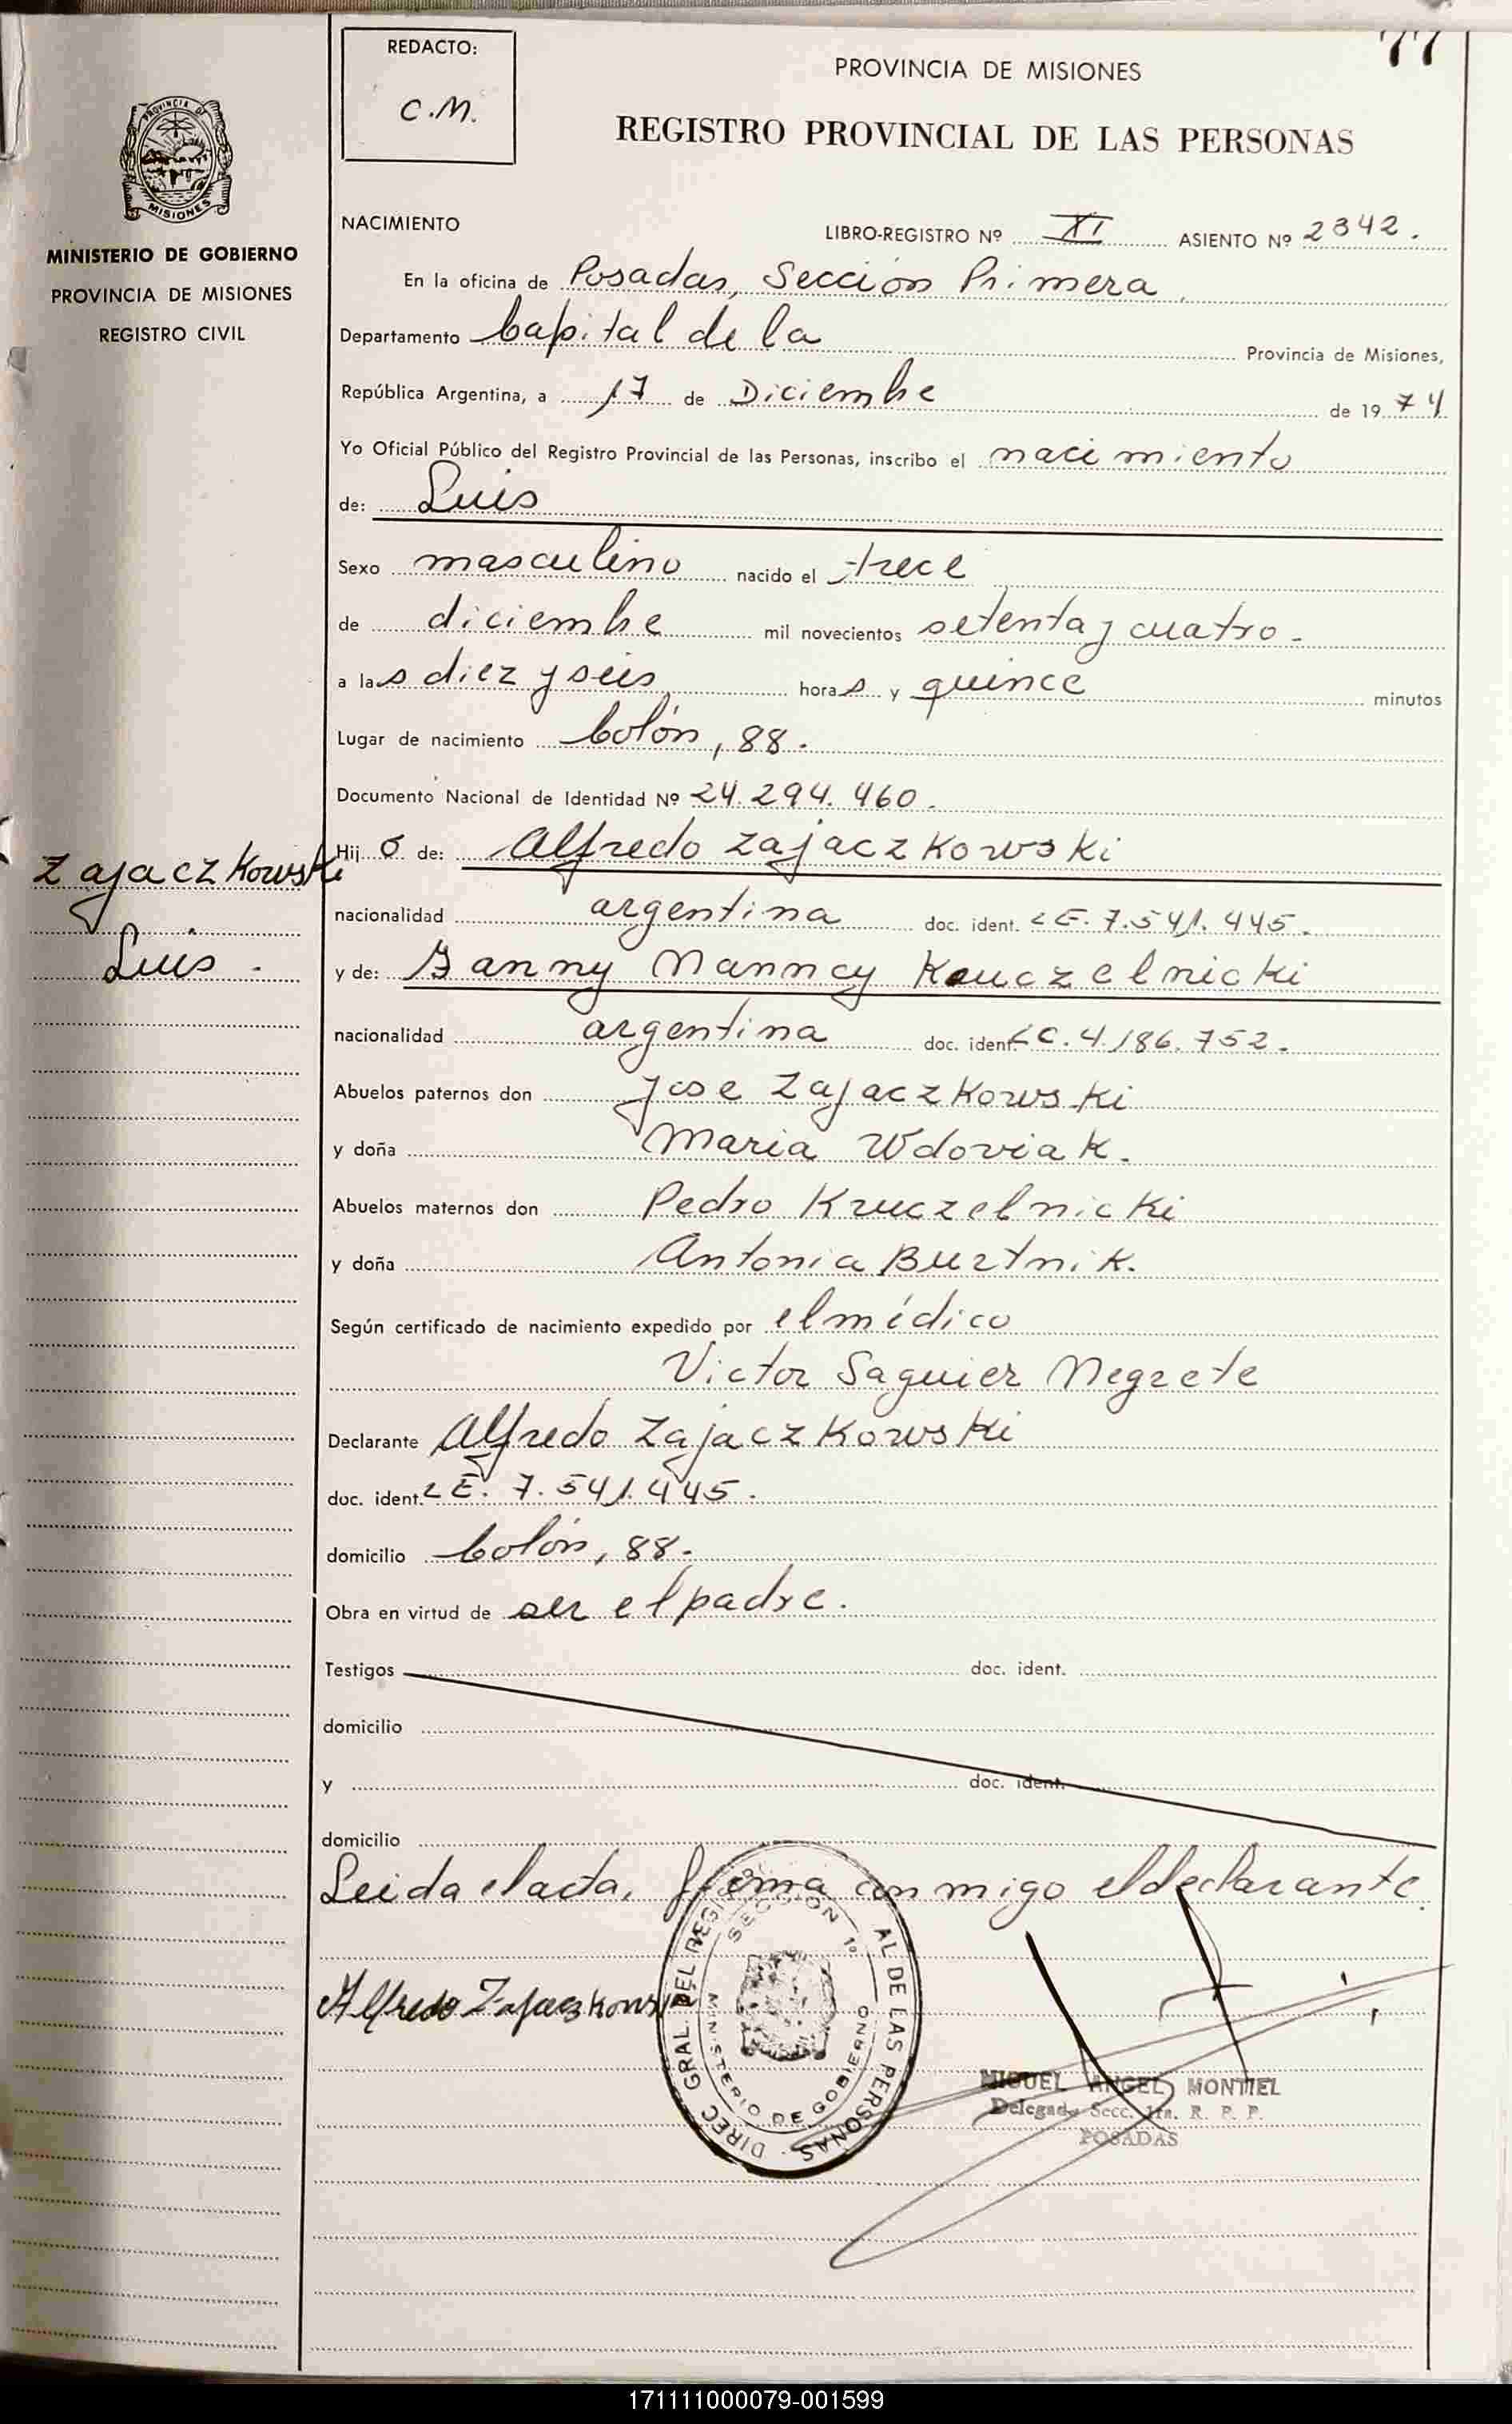 77
REDACTO:
C.M.
PROVINCIA DE MISIONES
REGISTRO PROVINCIAL DE LAS PERSONAS
PROVINCIA DE
MISIONES
MINISTERIO DE GOBIERNO
PROVINCIA DE MISIONES
REGISTRO CIVIL
NACIMIENTO
LIBRO-REGISTRO Nº XI ASIENTO Nº 2342.
En la oficina de Posadas, Sección Primera
Departamento Capital de la Provincia de Misiones,
República Argentina, a 17 de Diciembre de 1974
Yo Oficial Público del Registro Provincial de las Personas, inscribo el nacimiento
de: Luis
Sexo masculino nacido el trece
de diciembre mil novecientos setenta y cuatro.
a las diez y seis horas y quince minutos
Lugar de nacimiento Colón, 88.
Documento Nacional de Identidad Nº 24.294.460.
Hijo de: Alfredo Zajaczkowski
Zajaczkowski
Luis.
nacionalidad argentina doc. ident. LE. 7.541.445.
y de: Fanny Manncy Kruczelnicki
nacionalidad argentina doc. ident. LC. 4.186.752.
Abuelos paternos don Jose Zajaczkowski
y doña Maria Wdoviak.
Abuelos maternos don Pedro Kruczelnicki
y doña Antonia Burtnik.
Según certificado de nacimiento expedido por el médico
Victor Saguier Negrete
Declarante Alfredo Zajaczkowski
doc. ident. LE. 7.541.445.
domicilio Colón, 88.
Obra en virtud de ser el padre.
Testigos doc. ident.
domicilio
y doc. ident.
domicilio
Leida el acta, firma conmigo el declarante
Alfredo Zajaczkowski
DIREC GRAL. DEL REGI AL DE LAS PERSONAS
SECCION 1º
MINISTERIO DE GOBIERNO
MIGUEL ANGEL MONTIEL
Delegado Secc. 1ra. R. P. P.
POSADAS
171111000079-001599